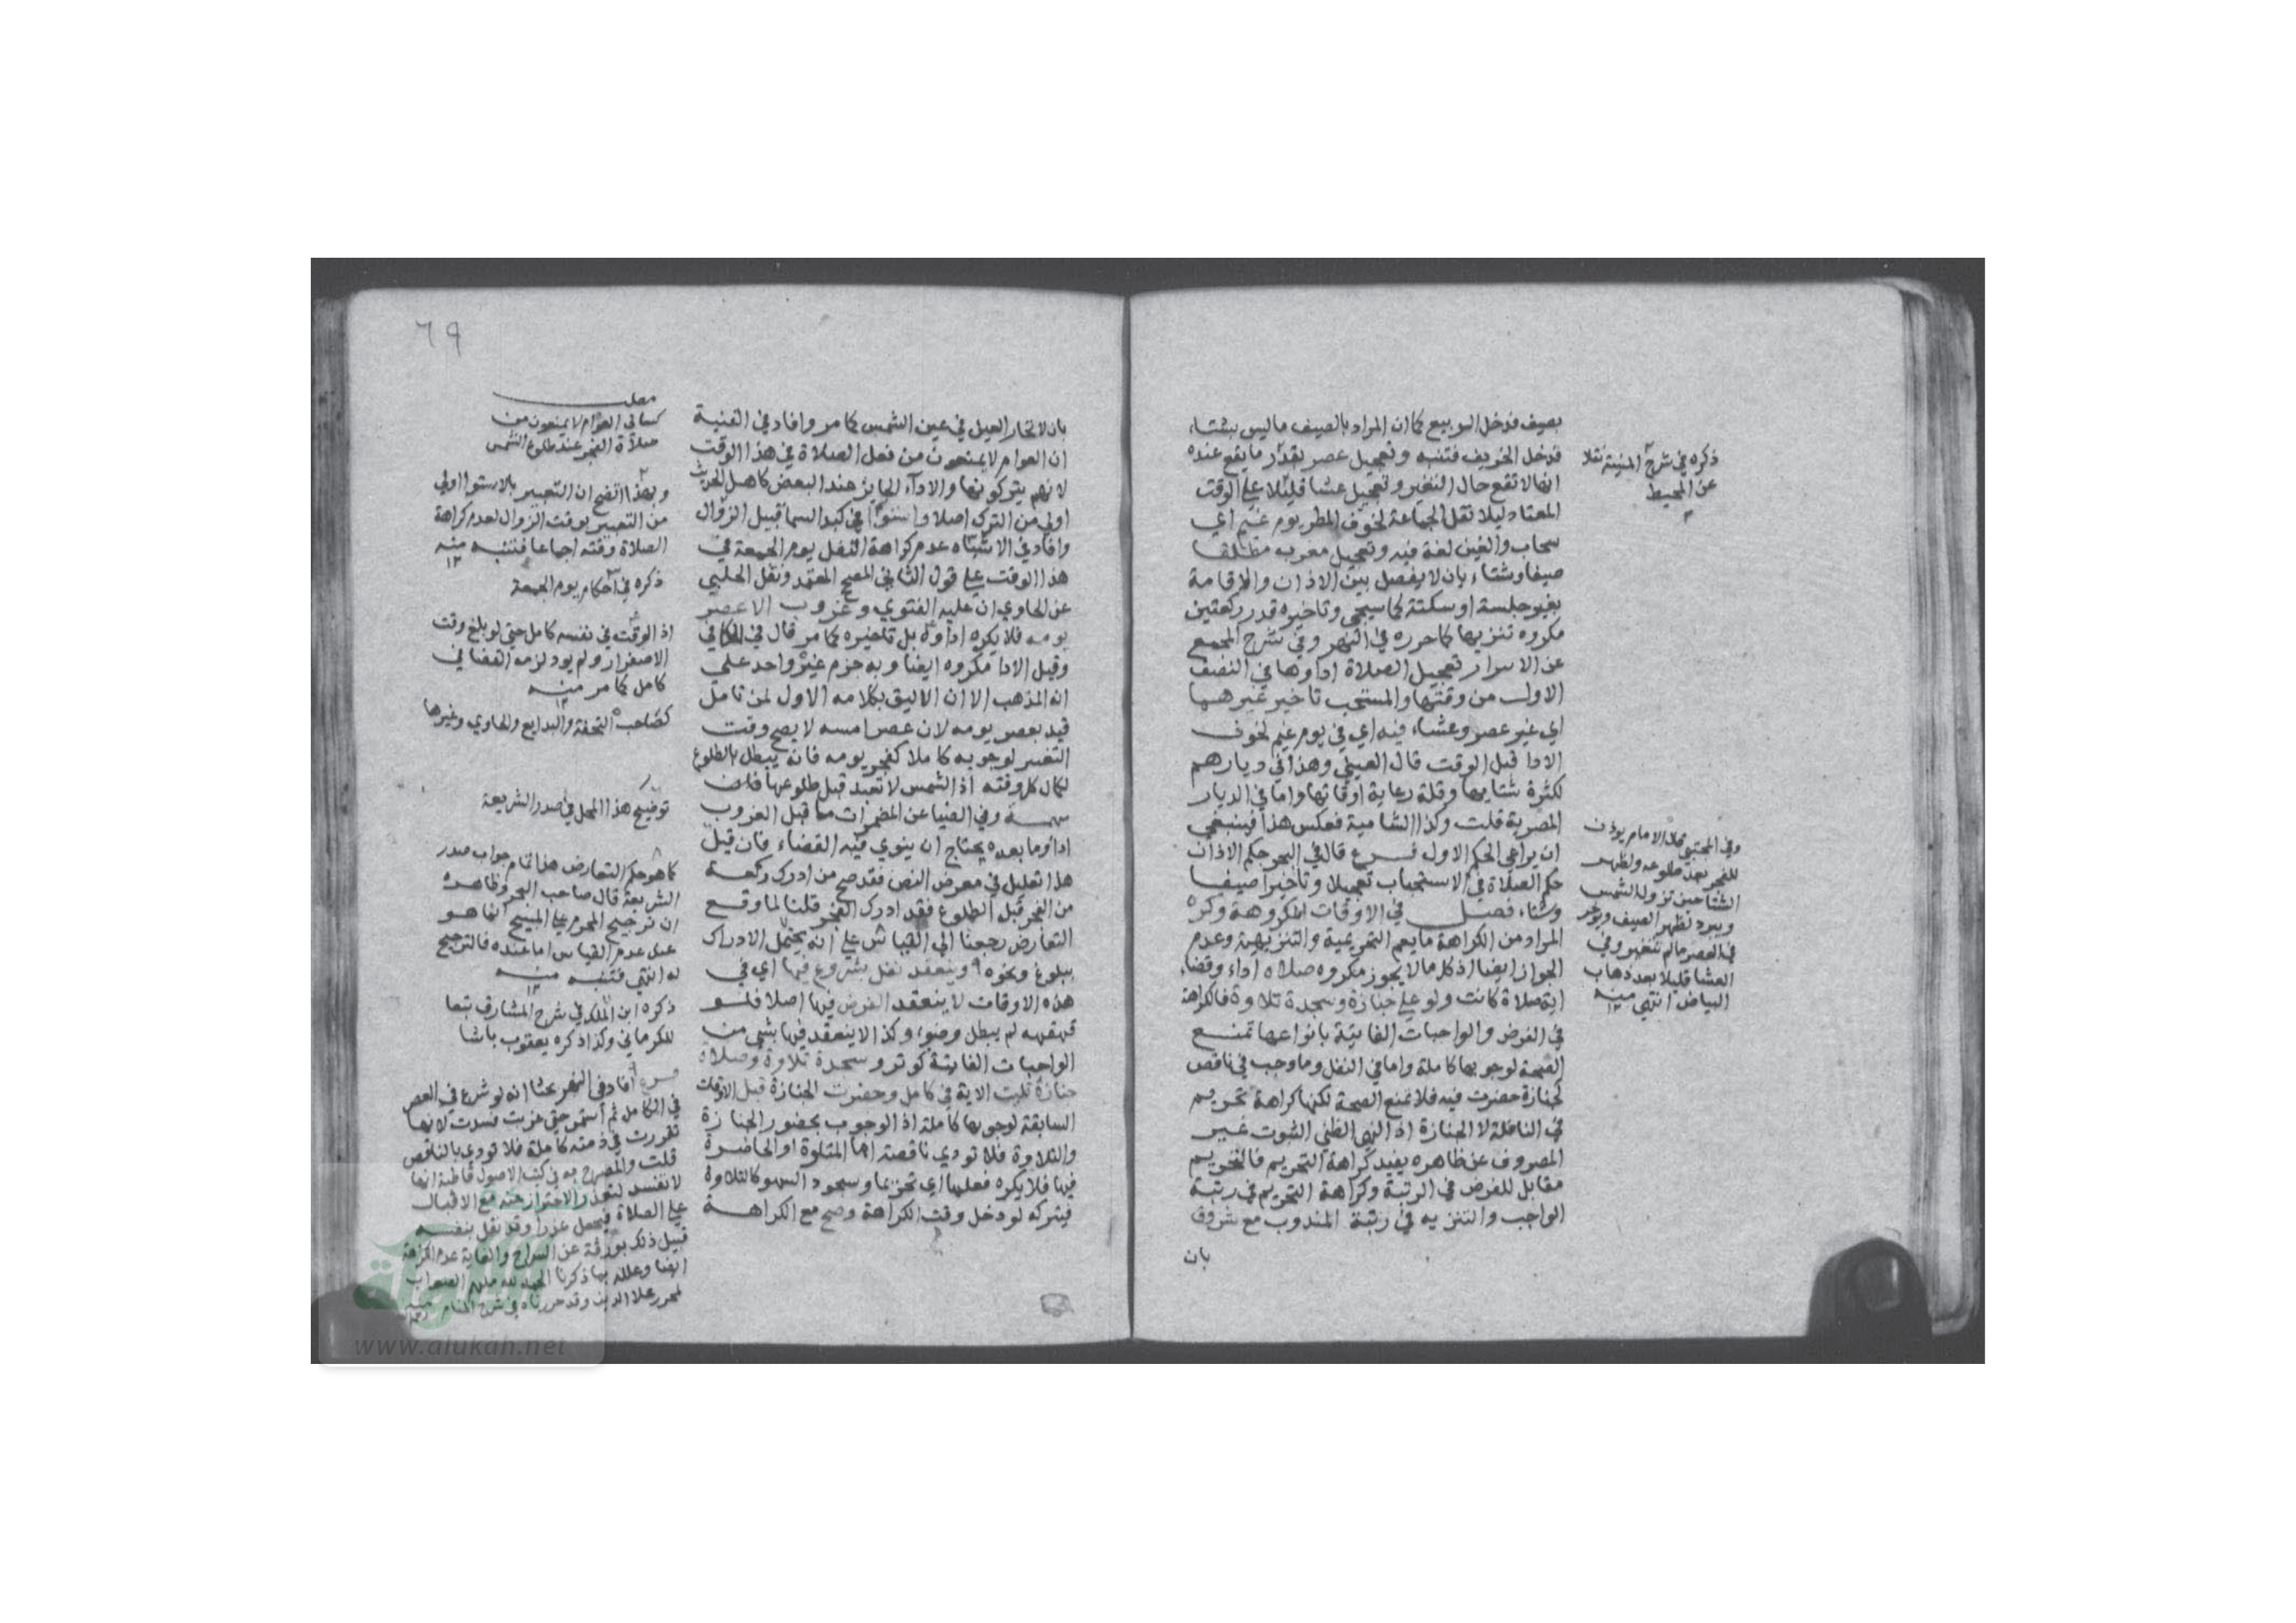 بصيف فدخل الربيع كما ان المراد بالصيف ما ليس بشتاء
فدخل الخريف فتنبه وتعجيل عصر بقدر ما يقع عنده
انها لا تقع حال التغير وتعجيل عشا قليلا علي الوقت
المعتاد ليلا تقل الجماعة لخوف المطر يوم غيم اي
سحاب والغين لغة فيه وتعجيل مغرب مطلقا
صيفا وشتاء بان لا يفصل بين الاذان والاقامة
بغير جلسة او سكتة كما سيجي وتاخيره قدر ركعتين
مكروه تنزيها كما حرره في النهر وفي شرح المجمع
عن الاسرار تعجيل الصلاة اداوها في النصف
الاول من وقتها والمستحب تاخير غيرهما
اي غير عصر وعشاء فيه اي في يوم غيم لخوف
الادا قبل الوقت قال العيني وهذا في ديارهم
لكثرة شتايها وقلة رعاية اوقاتها واما في الديار
المصرية قلت وكذا الشامية فعكس هذا فينبغي
ان يراعي الحكم الاول فرع قال في البحر حكم الاذان
حكم الصلاة في الاستحباب تعجيلا وتاخيرا صيفا
وشتاء فصل في الاوقات المكروهة وكره
المراد من الكراهة ما يعم التحريمية والتنزيهية وعدم
الجواز ايضا اذ كل ما لا يجوز مكروه صلاة اداء وقضاء
اية صلاة كانت ولو علي جنازة وسجدة تلاوة فالكراهة
في الفرض والواجبات الفايتة بانواعها تمنع
الصحة لوجوبها كاملة واما في النفل وما وجب في ناقص
كجنازة حضرت فيه فلا تمنع الصحة لكنها كراهة تحريم
في النافلة لا الجنازة اذ النهي الظني الثبوت غير
المصروف عن ظاهره يفيد كراهة التحريم فالتحريم
مقابل للفرض في الرتبة وكراهة التحريم في رتبة
الواجب والتنزيه في رتبة المندوب مع شروق
بان
ذكره في شرح المنية نقلا
عن المحيط
وفي المجتبي قال الامام يوذن
للفجر بعد طلوعه ولظهر
الشتا حين تزول الشمس
ويبرد لظهر الصيف ويوخر
في العصر ما لم تتغير وفي
العشا قليلا بعد ذهاب
البياض انتهي منه
٦٩
بان لا تحار العين في عين الشمس كما مر وافاد في القنية
ان العوام لا يمنعون من فعل الصلاة في هذا الوقت
لانهم يتركونها والاداء الجايز عند البعض كاهل الحديث
اولي من الترك اصلا واستوا في كبد السما قبيل الزوال
وافاد في الاشباه عدم كراهة النفل يوم الجمعة في
هذا الوقت علي قول الثاني المصحح المعتمد ونقل الحلبي
عن الحاوي ان عليه الفتوي وغروب الا عصر
يومه فلا يكره اداوه بل تاخيره كما مر قال في الكافي
وقيل الادا مكروه ايضا وبه جزم غير واحد علي
انه المذهب الا ان الاليق بكلامه الاول لمن تامل
قيد بعصر يومه لان عصر امسه لا يصح وقت
التغير لوجوبه كاملا كفجر يومه فانه يبطل بالطلوع
لكمال كل وقته اذ الشمس لا تعبد قبل طلوعها فلا
وفي الضيا عن المضمرات ما قبل الغروب
ادا وما بعده يحتاج ان ينوي فيه القضاء فان قيل
هذا تعليل في معرض النص فقد صح من ادرك ركعة
من الفجر قبل الطلوع فقد ادرك الفجر قلنا لما وقع
التعارض رجعنا الي القياس علي انه يحتمل الادراك
ببلوغ ونحوه وينعقد نفل بشروع فيها اي في
هذه الاوقات لا ينعقد الفرض فيها اصلا فلو
قهقهه لم يبطل وضوه وكذا لا ينعقد فيها بشي من
الواجبات الفايتة كوتر وسجدة تلاوة وصلاة
جنازة تليت الاية في كامل وحضرت الجنازة قبل الاوقات
السابقة لوجوبها كاملة اذ الوجوب بحضور الجنازة
والتلاوة فلا تودي ناقصة اما المتلوة او الحاضرة
فيها فلا يكره فعلها اي تحريما وسجود السهو كالتلاوة
فيتركه لو دخل وقت الكراهة وصح مع الكراهة
مطلب
كسالي العوام لا يمنعون من
صلاة الفجر عند طلوع الشمس
وبهذا اتضح ان التعبير بالاستوا اولي
من التعبير بوقت الزوال لعدم كراهة
الصلاة وقته اجماعا فتنبه منه
١٢
ذكره في احكام يوم الجمعة
اذ الوقت في نفسه كامل حتي لو بلغ وقت
الاصفرار ولم يود لزمه القضا في
كامل كما مر منه
١٢
كصاحب التحفة والبدايع والحاوي وغيرها
توضيح هذا المحل في صدر الشريعة
كما هو حكم التعارض هذا تمام جواب صدر
الشريعة قال صاحب البحر وظاهره
ان ترجيح المحرم علي المبيح انما هو
عند عدم القياس اما عنده فالترجيح
له انتهي فتنبه منه
١٢
ذكره ابن الملك في شرح المشارق تبعا
للكرماني وكذا ذكره يعقوب باشا
افاد في النهر بحثا انه لو شرع في العصر
في الكامل ثم استمر حتي غربت فسدت لانها
تقررت في ذمته كاملة فلا تودي بالناقص
قلت والمصرح به في كتب الاصول قاطبة انها
لا تفسد لتعذر الاحتراز عنه مع الاقبال
علي الصلاة فيجعل عذرا وقد نقل بنفسه
قبيل ذلك بورقة عن السراج والغاية عدم الكراهة
ايضا وعلله بما ذكرنا الحمد لله ملهم الصواب
لمحرره علا الدين وقد حررناه في شرح المنار منه
www.alukah.net